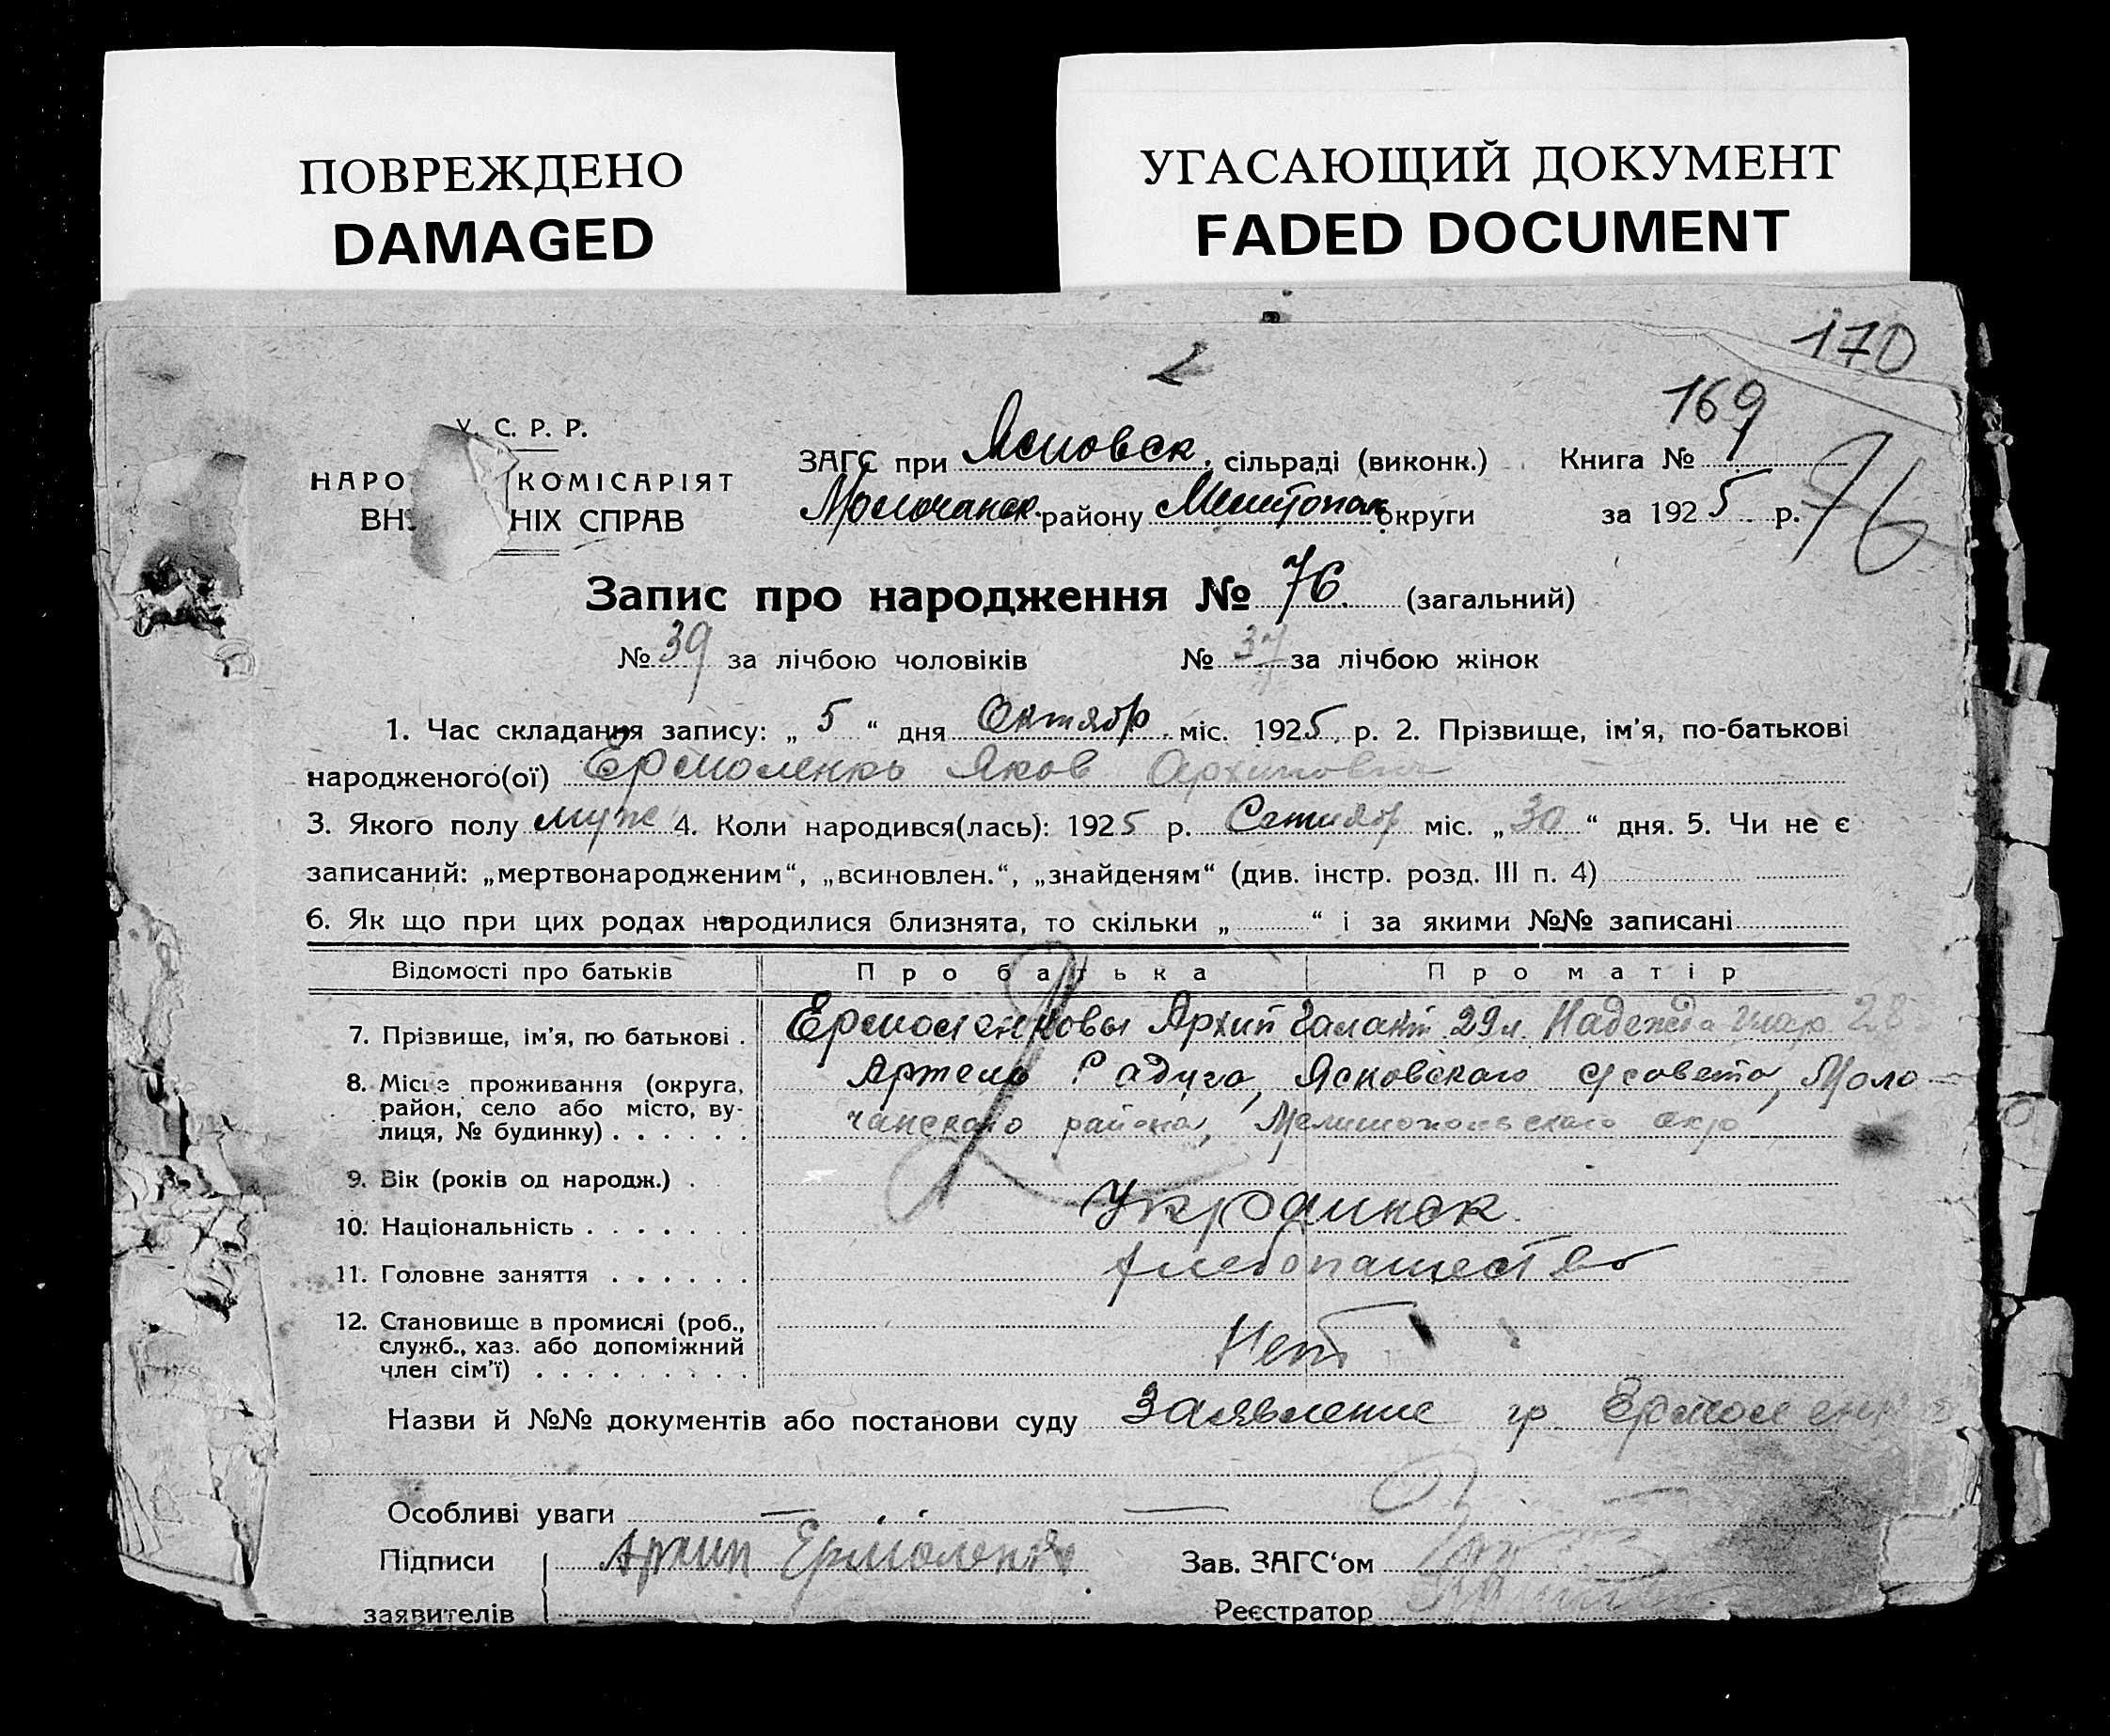 ПОВРЕЖДЕНО
DAMAGED
УГАСАЮЩИЙ ДОКУМЕНТ
FADED DOCUMENT
170
169
У. С. Р. Р.
НАРО КОМІСАРІЯТ
ВН НІХ СПРАВ
ЗАГС при Ясновск. сільраді (виконк.) Книга № 
Молочанск. району Мелитопол округи за 1925 р.
76
Запис про народження № 76. (загальний)
№ 39 за лічбою чоловіків № 37 за лічбою жінок
1. Час складання запису: „ 5 “ дня Октябр. міс. 1925 р. 2. Прізвище, ім'я, по-батькові
народженого(ої) Ермоленко Яков Архипович
3. Якого полу муж 4. Коли народився(лась): 1925 р. Сентябр міс. „ 30 “ дня. 5. Чи не є
записаний: „мертвонародженим“, „всиновлен.“, „знайденям“ (див. інстр. розд. III п. 4)
6. Як що при цих родах народилися близнята, то скільки „ “ і за якими №№ записані
Відомості про батьків Про батька Про матір
7. Прізвище, ім'я, по батькові . Ермоленковы Архип Галакт. 29 л. Надежда 28
8. Місце проживання (округа, Артель Радуга, Ясновского с/совета, Моло-
район, село або місто, ву-
лиця, № будинку) . . . . . . чанского района, Мелитопольского окр
9. Вік (років од народж.) .
10. Національність . . . . . . . Украинск.
11. Головне заняття . . . . . . хлебопашество
12. Становище в промислі (роб.,
служб., хаз. або допоміжний Нет
член сім'ї) . . . . . . . . .
Назви й №№ документів або постанови суду Заявление гр. Ермоленко
Особливі уваги — —
Підписи Архип Ермоленко Зав. ЗАГС'ом
заявителів Реєстратор